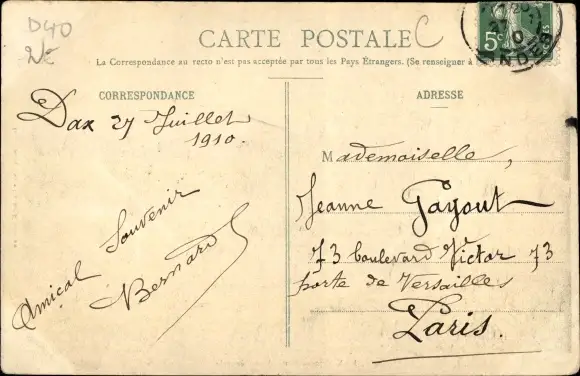 D40
2€
CARTE POSTALE
La Correspondance au recto n'est pas acceptée par tous les Pays Étrangers. (Se renseigner à
5c
CORRESPONDANCE
ADRESSE
Dax 27 Juillet
1910.
Amical Souvenir
Bernard
Mademoiselle,
Jeanne Gayout
73 boulevard Victor 73
porte de Versailles
Paris.